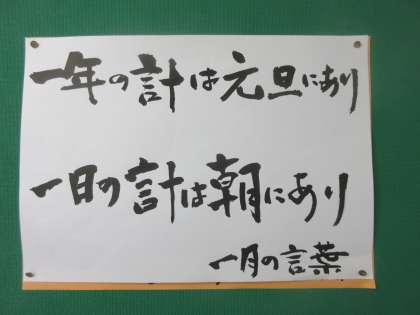 一年の計は元旦にあり
一日の計は朝にあり
一月の言葉